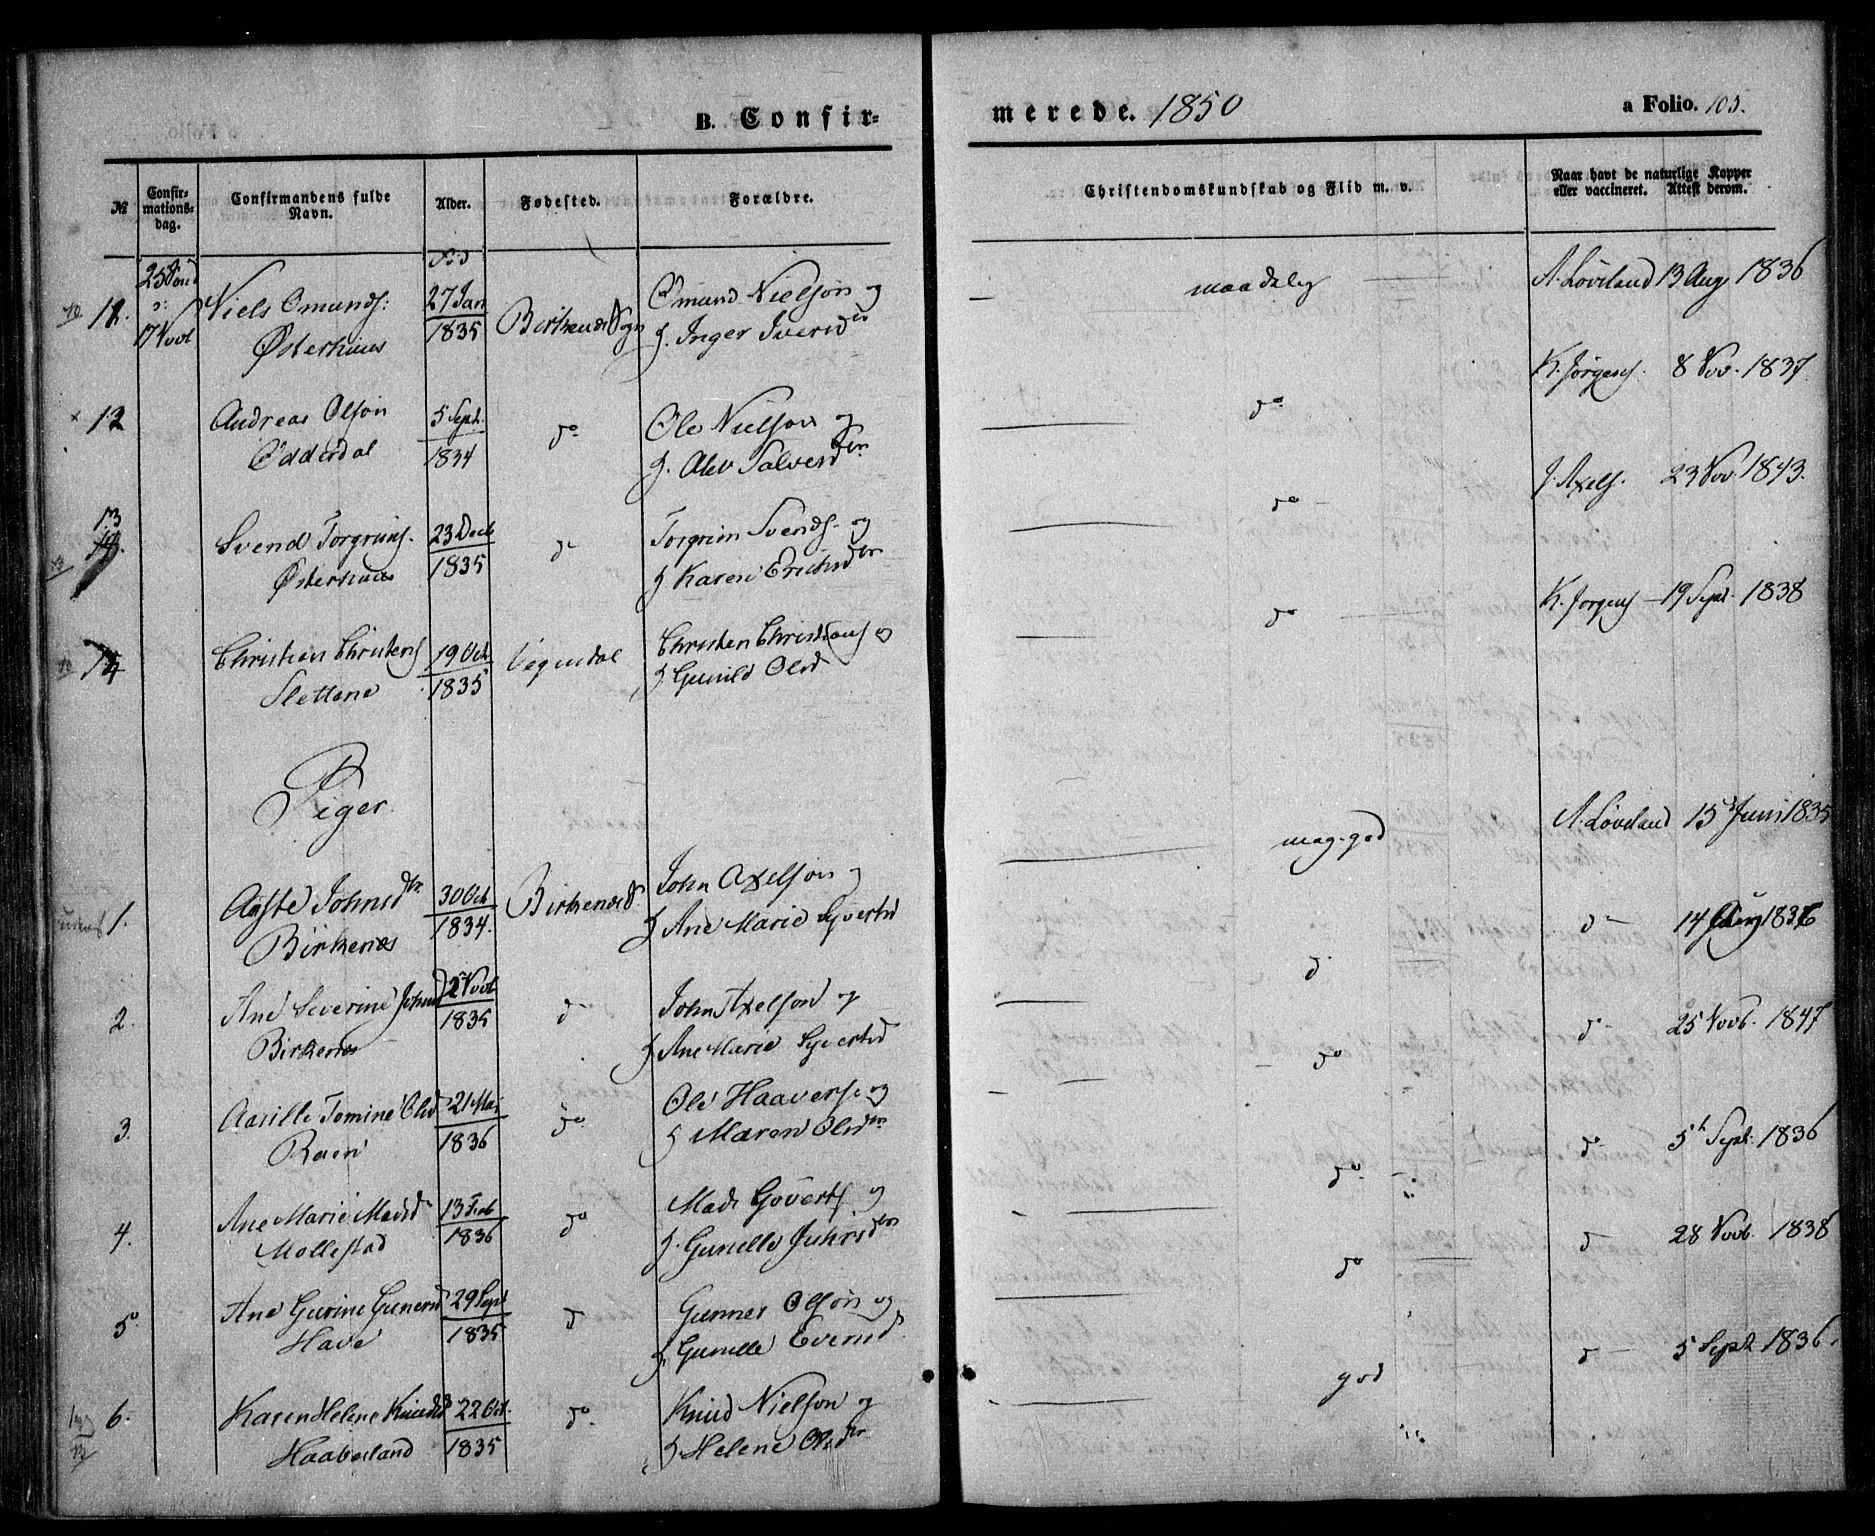 B. Confir-
merede. 1850
a Folio. 103.
№
Confir-
mations-
dag.
Confirmandens fulde
Navn.
Alder.
Fødested.
Forældre.
Christendomskundskab og Flid m. v.
Naar havt de naturlige Kopper
eller vaccineret. Attest derom.
11.
17 Novb
Niels Omunds:
Østerhuus
27 Jan
1835
Birkenæs Sogn
Omund Nielsøn og
H. Inger Iversdtr
maadelig
A. Løveland 13 Aug 1836
12
Andreas Olsøn
Odderdal
5 Sept.
1834
do
Ole Nielsøn og
H. Alev Salvesdtr
do
K. Jørgens. 8 Nov. 1837.
13
Svend Torgrims.
Østerhuus
23 Decb
1835
do
Torgrim Svends. og
H Karen Erichsdtr
do
J. Axels. 23 Nov 1843.
14
Christen Christens
Slettene
19 Oct
1835
Vegusdal
Christen Christians og
H Gunild Olsd
do
K. Jørgens 19 Sept. 1838
Piger
1.
Aaste Johnsdtr.
Birkenæs
30 Oct
1834.
Birkenæs
John Axelsøn og
H Ane Marie Syvertsd
meg. god
A. Løveland 15 Juni 1835
2.
Ane Severine Johnsd
Birkenæs
Novb
1835
do
John Axelsøn og
H Ane Marie Syvertsd
do
do 14 1836
3.
Aasille Tomine Olsd
Raen
21 Mai
1836
do
Ole Haavers. og
H Maren Olsdtr
do
do 25 Novb. 1847
4.
Ane Marie Madsd
Mollestad
13 Feb
1836
do
Mads Goverts og
H. Gunille Juhrsdtr
do
do 5 Sept. 1836
5
Ane Gurine Gunersd
Have
29 Sept
1835
do
Gunner Olsøn og
H. Gunille Eversd.
do
do 28 Novb. 1838
6.
Karen Helene Knudsd
Haaberland
22 Oct.
1835
do
Knud Nielsøn og
H Helene Olsdtr
god
do 5 Sept 1836.